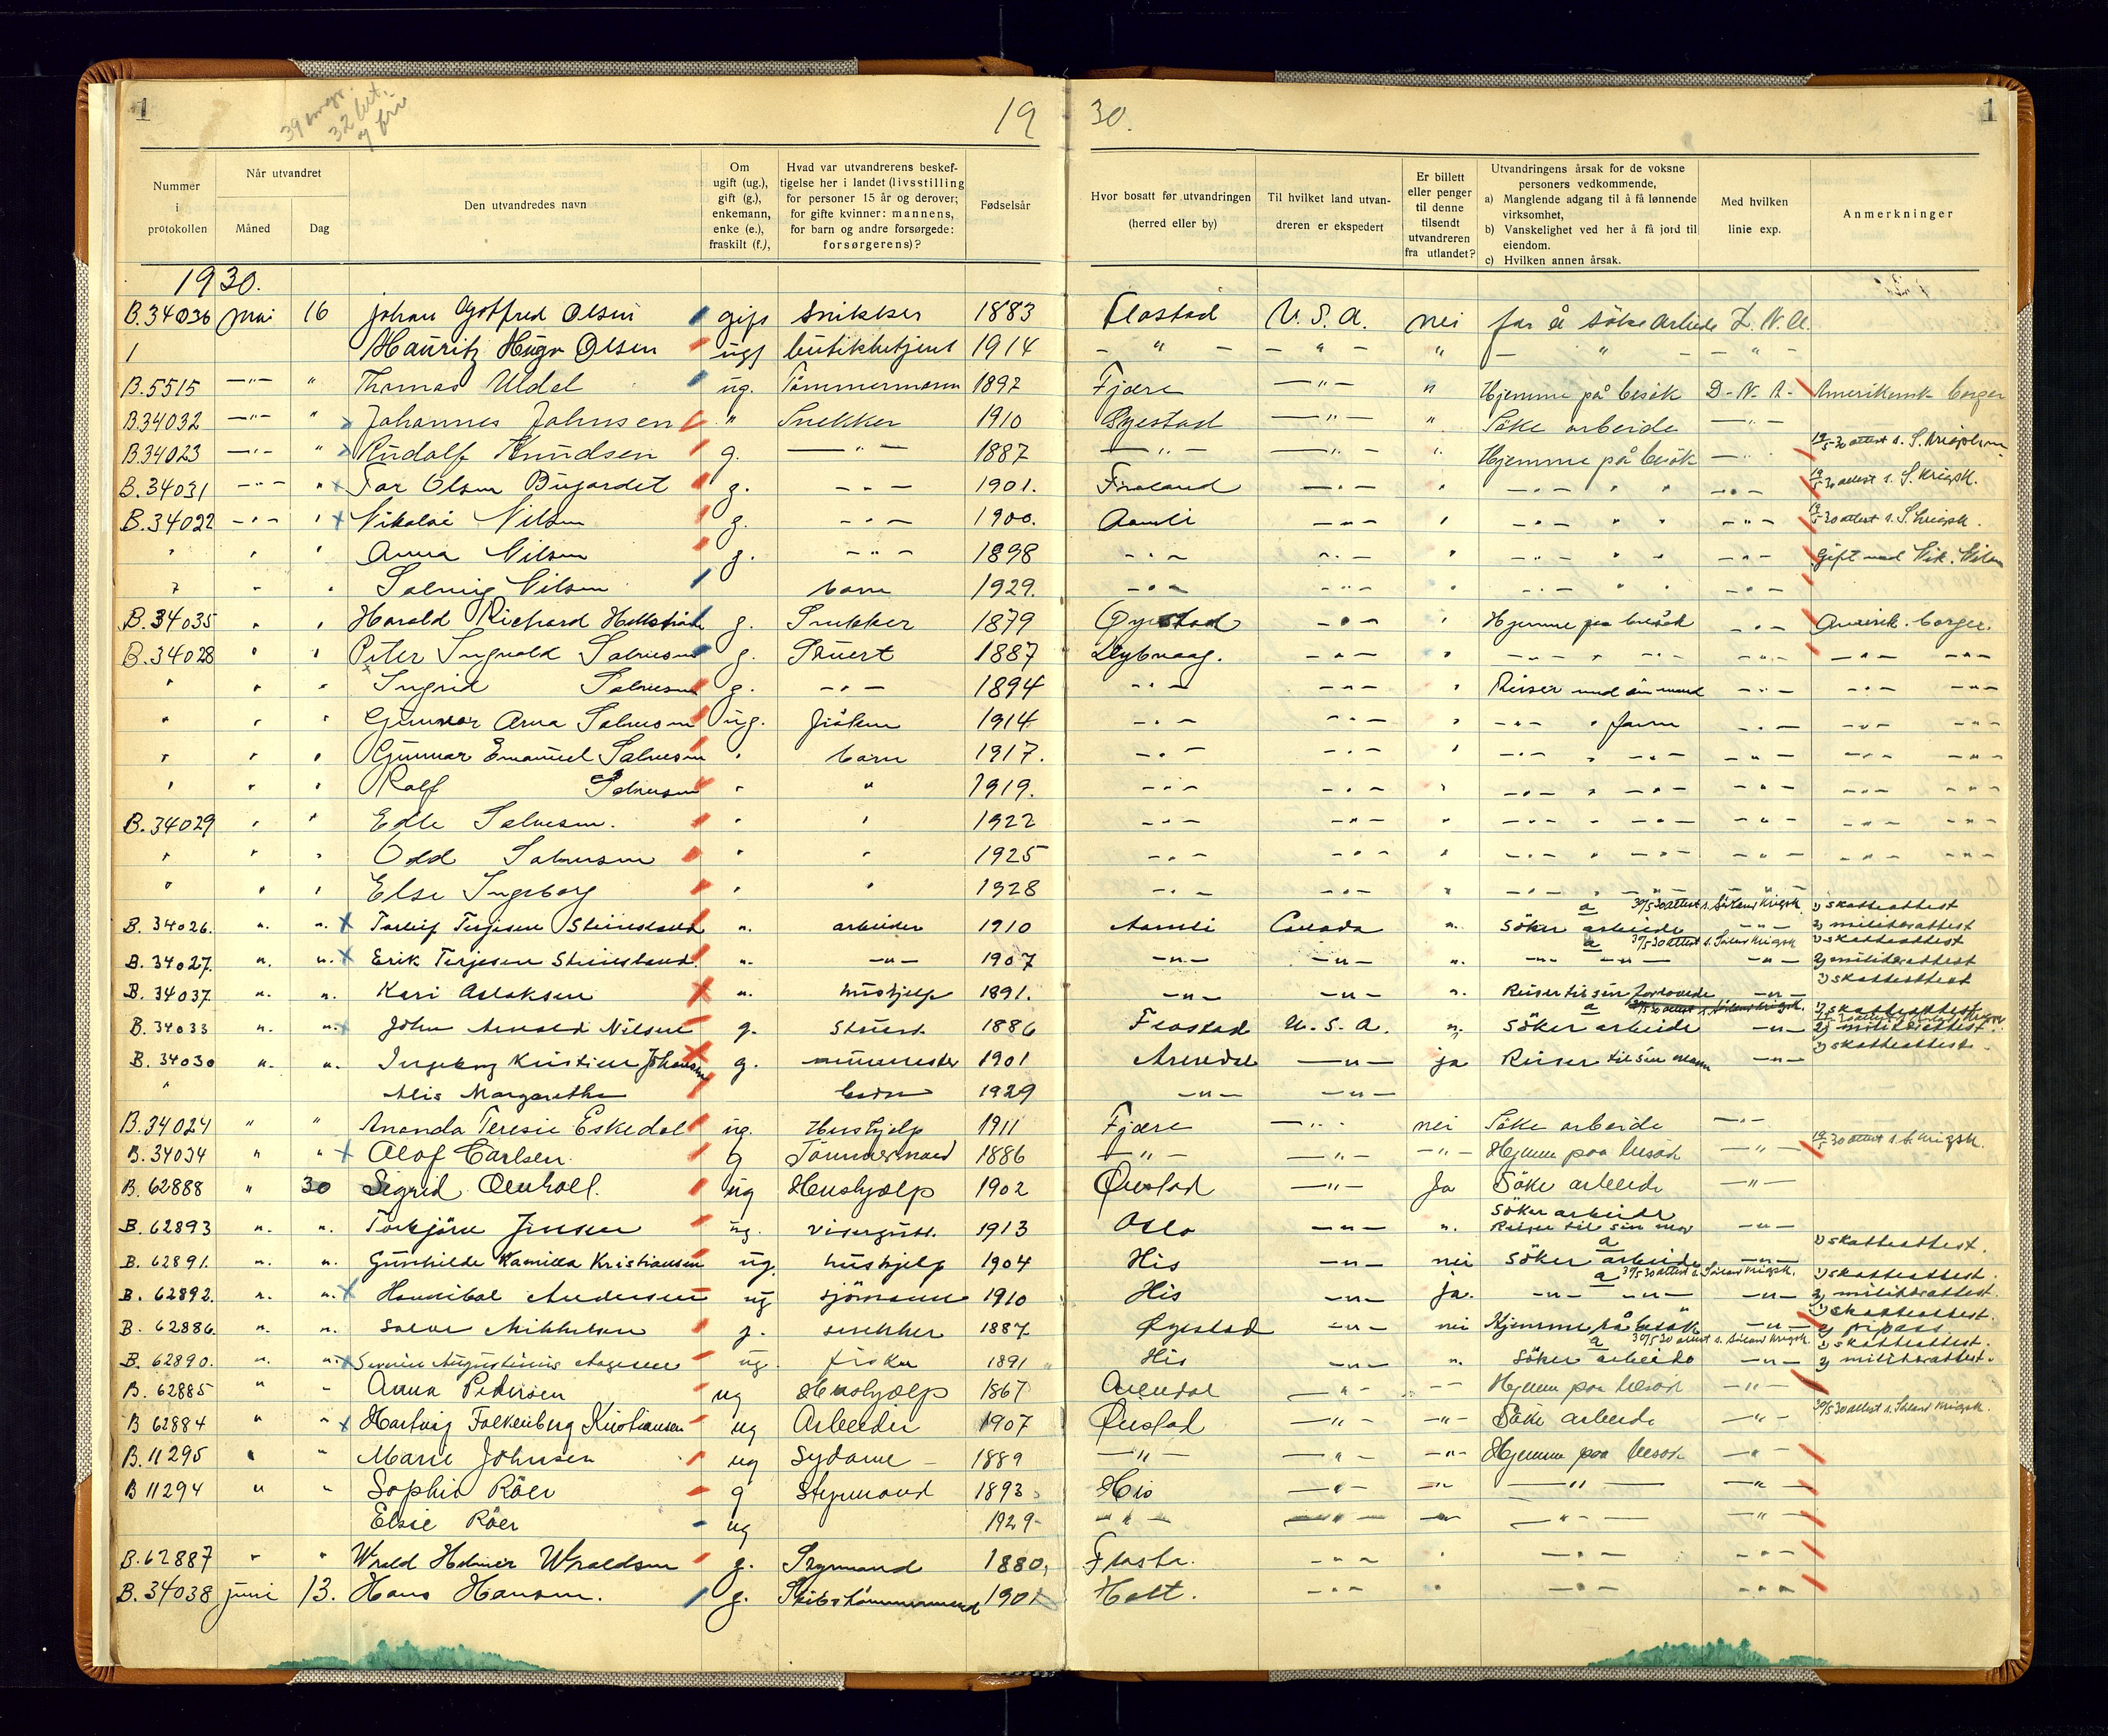 1
39
32
19
30.
1
Nummer i protokollen
Når utvandret
Måned
Dag
Den utvandredes navn
Om ugift (ug.), gift (g.), enkemann, enke (e.), fraskilt (f.),
Hvad var utvandrerens beskeftigelse her i landet (livsstilling for personer 15 år og derover; for gifte kvinner: mannens, for barn og andre forsørgede: forsørgerens)?
Fødselsår
Hvor bosatt før utvandringen (herred eller by)
Til hvilket land utvandreren er ekspedert
Er billett eller penger til denne tilsendt utvandreren fra utlandet?
Utvandringens årsak for de voksne personers vedkommende,
a) Manglende adgang til å få lønnende virksomhet,
b) Vanskelighet ved her å få jord til eiendom.
c) Hvilken annen årsak.
Med hvilken linie exp.
Anmerkninger
1930.
B.34036 Mai 16 Johan Gotfred Olsen gift Snikker 1883 Flostad U.S.A. nei for å søke Arbeide
Hauritz Hugo Olsen ugf butikbetjent 1914 - " - - " - " - " - - " -
B.5515 -"- " Thomas Uldal ug. Tømmermann 1892 Fjære -"- " Hjemme på besøk D-N-A- Amerikansk borger
B.34032 -"- " Johannes Johnsen " Snekker 1910 Øyestad -"- " Søke arbeide -"-
B.34023 -"- " Rudolf Knudsen g. -"- 1887 -"- -"- " Hjemme på besøk -"-
B.34031 -"- " Tar Olsen g. -"- 1901. Froland -"- " -"- " " -"- 19/5 30 attest s. S. Krigsk.
B.34022 -"- " Nikolai Nilsen g. -"- 1900. Aamli -"- " -"- " " -"- 19/5 30 attest s. S. Krigsk.
" " " Anna Nilsen g. -"- 1898 -"- -"- " -"- " " -"- Gift med Nik. Nilsen
" " " Solveig Nilsen barn 1929. -"- -"- -"- " " -"-
B.34035 " " Harald Richard g. Snekker 1879 Øyestad -"- " Hjemme paa besøk -"- Amerik. borger.
B.34028 " " Peter Ingvald Salvesen g. Stuert 1887 Dybvaag. -"- " -"- " -"- -"- -"- -"-
" " " Ingrid Salvesen g. -"- 1894 -"- -"- " Reiser med sin mand -"- -"- -"-
" " " Gunvor Anna Salvesen ug. frøken 1914 -"- -"- " -"- " farm -"- -"- -"-
" " " Gunnar Emanuel Salvesen " barn 1917. -"- -"- " -"- " -"- -"- -"- -"-
" " " Rolf Salvesen " " 1919. -"- -"- " -"- " -"- -"- -"- -"-
B.34029 " " Edle Salvesen. " " 1922 -"- -"- " -"- " -"- -"- -"- -"-
" " " Odd Salvesen " " 1925 -"- -"- " -"- " -"- -"- -"- -"-
" " " Else Ingeborg " " 1928 -"- -"- " -"- " -"- -"-
B. 34026. " " Torleif Terjesen Stinesland " arbeider 1910 Aamli Canada " a søker arbeide 30/5 30 attest s. Sørland Krigsk. -"- 1) skatteattest 2) militærattest
B. 34027. " " Erik Terjesen Stinesland " -"- 1907 -"- -"- " a -"- -"- 30/5 30 attest s. Sørland Krigsk -"- 1) skatteattest 2) militærattest
B. 34037. " " Kari Aslaksen " hushjelp 1891. -"- -"- " Reiser til sin forlovede -"- 1) skatteattest
B. 34033 " " John Arnold Nilsen g. Stuert 1886 Flostad U.S.A. " a søker arbeide -"- 1) skatteattest 2) militærattest.
B. 34030 " " Ingeborg Kristine Johansen g. murmester 1901 Arendal -"- ja Reiser til sin mann -"- 1) skatteattest.
" Alis Margarethe barn 1929 -"- -"-
B.34024 " " Ananda Teresie Eskedal ug. Hushjelp 1911 Fjære -"- nei Søke arbeide -"-
B.34034 " " Olof Carlsen g Tømmermand 1886 -"- -"- -"- Hjemme paa besøk -"- 19/5 30 attest s. S. Krigsk.
B. 62888 " 30 Sigrid ug Hushjælp 1902 Øiestad -"- Ja Søke arbeide -"-
B. 62893 " " Torbjørn Jensen ug. visergutt. 1913 Oslo -"- " Søker arbeide Reiser til sin mor -"-
B. 62891. " " Gunhilde Kamilla Kristiansen ug. hushjelp 1904 His -"- nei a søker arbeide -"- 1) skatteattest.
B. 62892. " " Hannibal Andersen ug sjømann 1910 His -"- ja. a -"- -"- 30/5 30 attest s. Sørland Krigsk. -"- 1) skatteattest. 2) militærattest.
B. 62886. " " Salve Mikkelsen g. snekker 1887 Øyestad -"- nei Hjemme på besøk -"- 1) skatteattest. 2) pass.
B. 62890. " " Augustinius Aagesen ug. fisker 1891 His -"- " a søker arbeide 30/5 30 attest s. Sørland Krigsk. -"- 1) skatteattest. 2) militærattest.
B. 62885 " " Anna Pedersen ug Hushjælp 1867 Arendal -"- -"- Hjemme paa besøk -"-
B 62884 " " Hartvig Falkenberg Kristiansen ug Arbeider 1907 Øiestad -"- -"- Søke arbeide -"- 30/5 30 attest s. Sørland Krigsk.
B.11295 " " Marie Johnsen ug Sydame 1889 -"- -"- -"- Hjemme paa besøk -"-
B 11294 " " Sophie Röer g Styrmand 1893 His -"- -"- -"- -"-
Elsie Röer ug 1929 -"- -"- -"- -"- -"-
B.62887 " " Wrald Helmer Wraldsen g. Styrmand 1880, Flosta. -"- " -"- -"-
B.34038 juni 13. Hans Hansen. g. Skibstømmermand 1901 Holt. -"- " -"- -"-